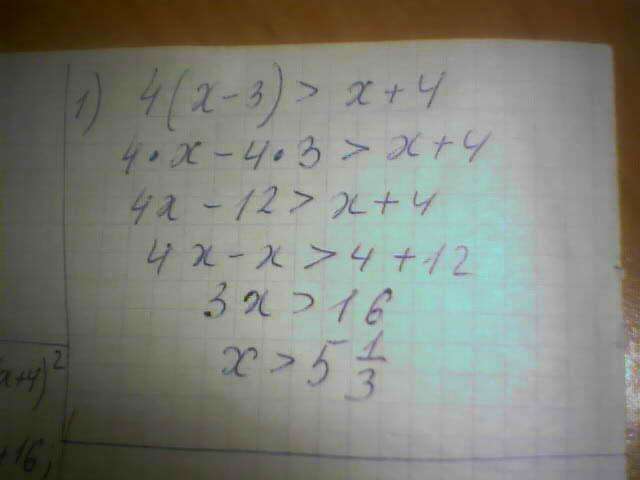 1) 4(x-3)> x+4
4•x-4•3>x+4
4x-12>x+4
4x-x>4+12
3x>16
x>5 1/3
x+4)²
+16;